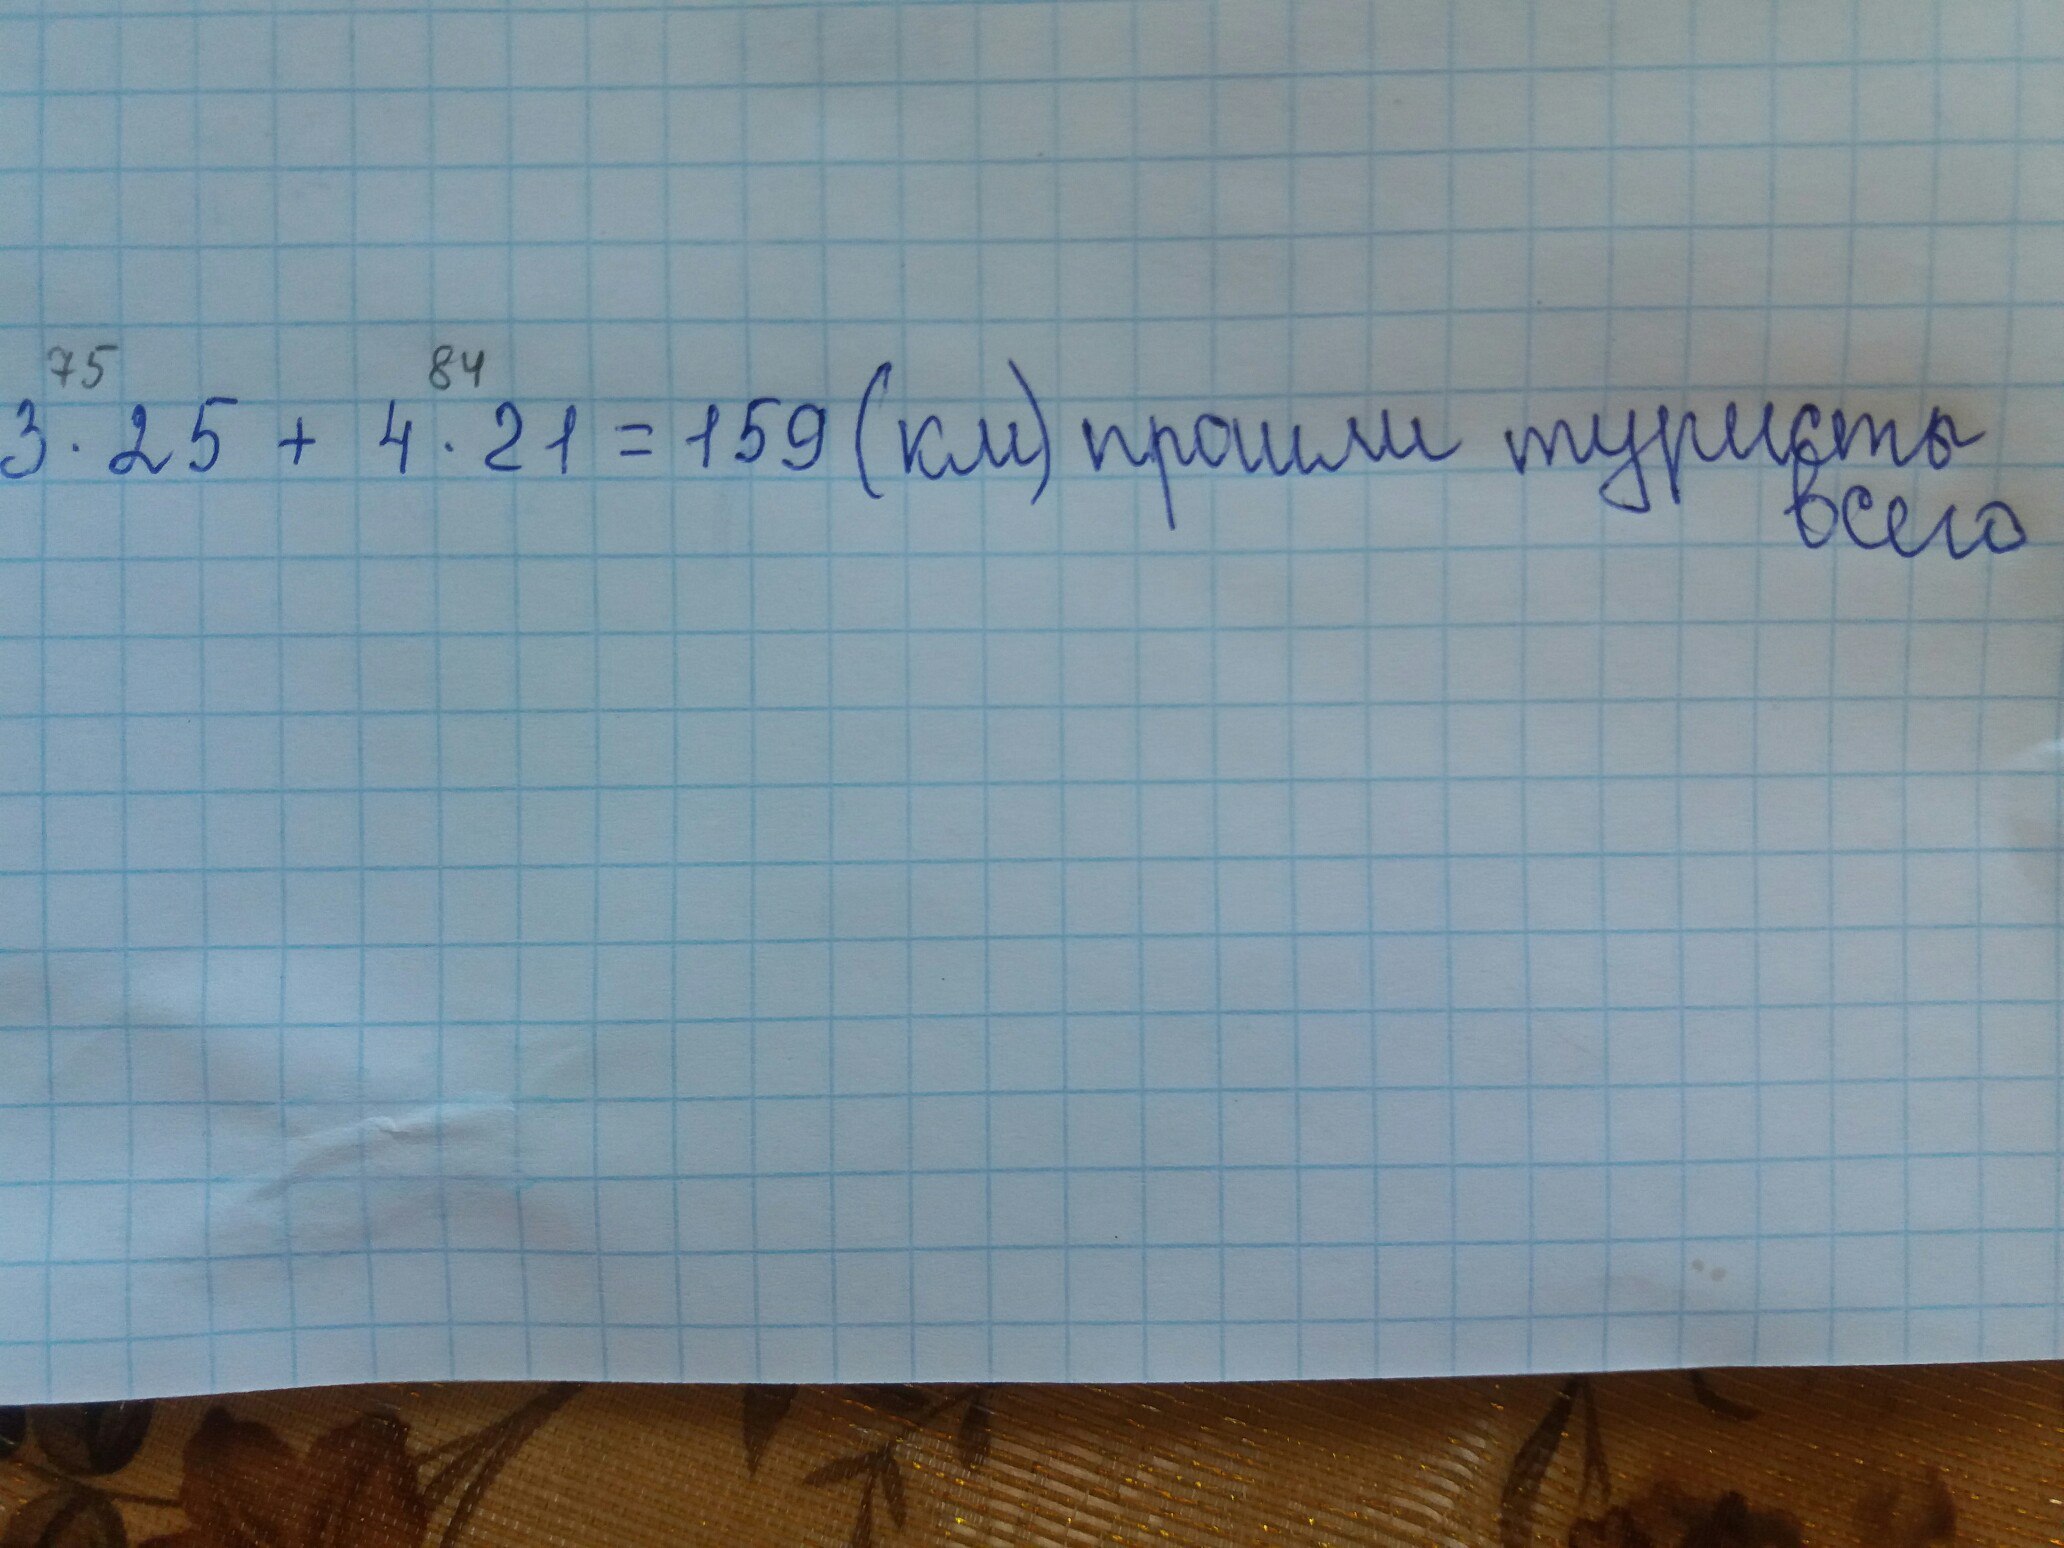 75 84
3 · 25 + 4 · 21 = 159 (км) прошли туристы
всего